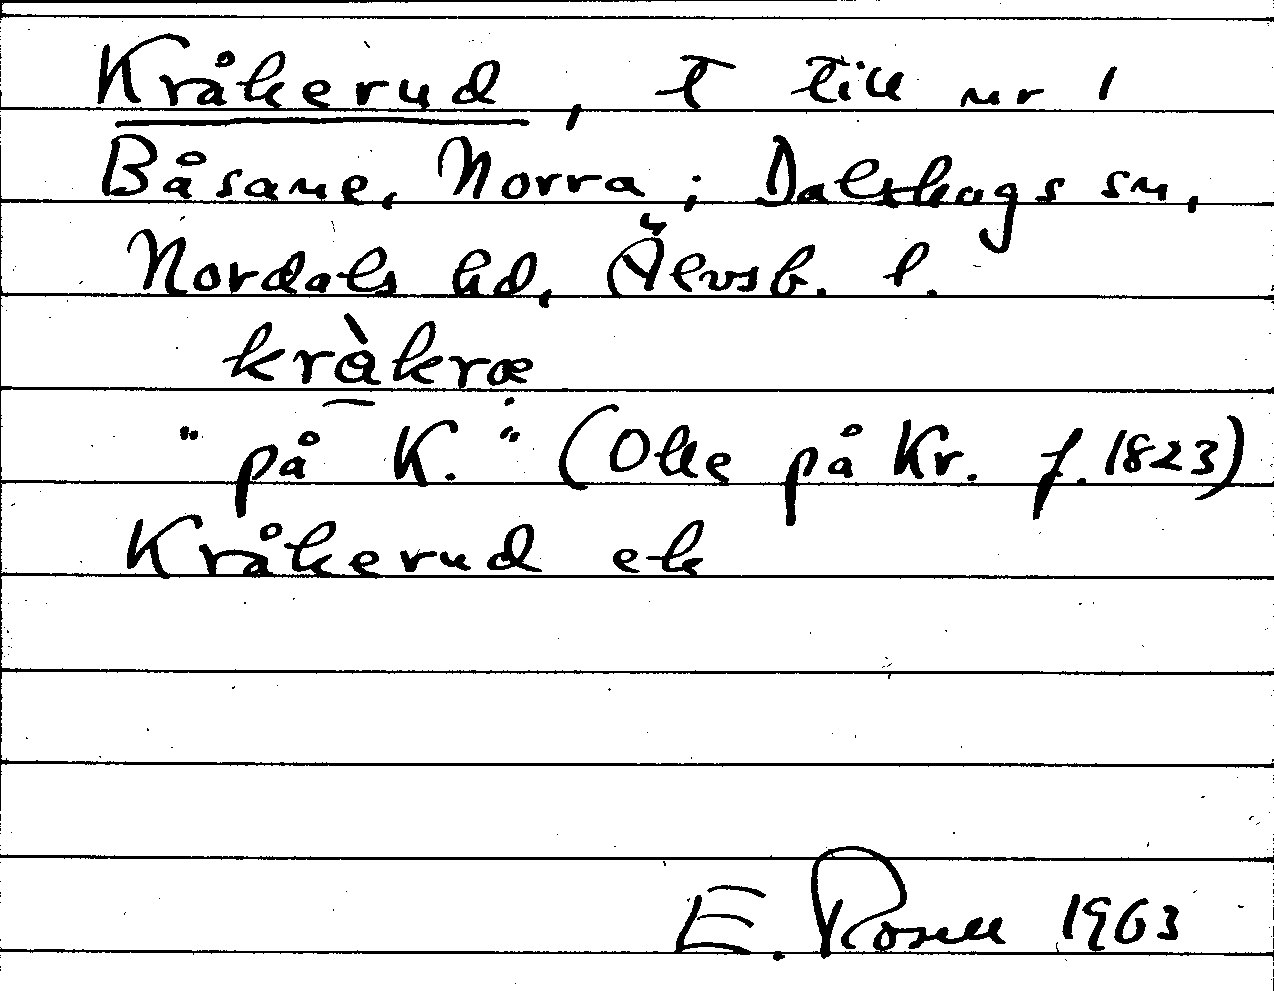 Kråkerud, t till nr 1
Båsane, Norra; Dalskogs sn,
Nordals hd, Älvsb. l.
kràkræ
"på K." (Olle på Kr. f. 1823)
Kråkerud ek
E. Rosell 1963